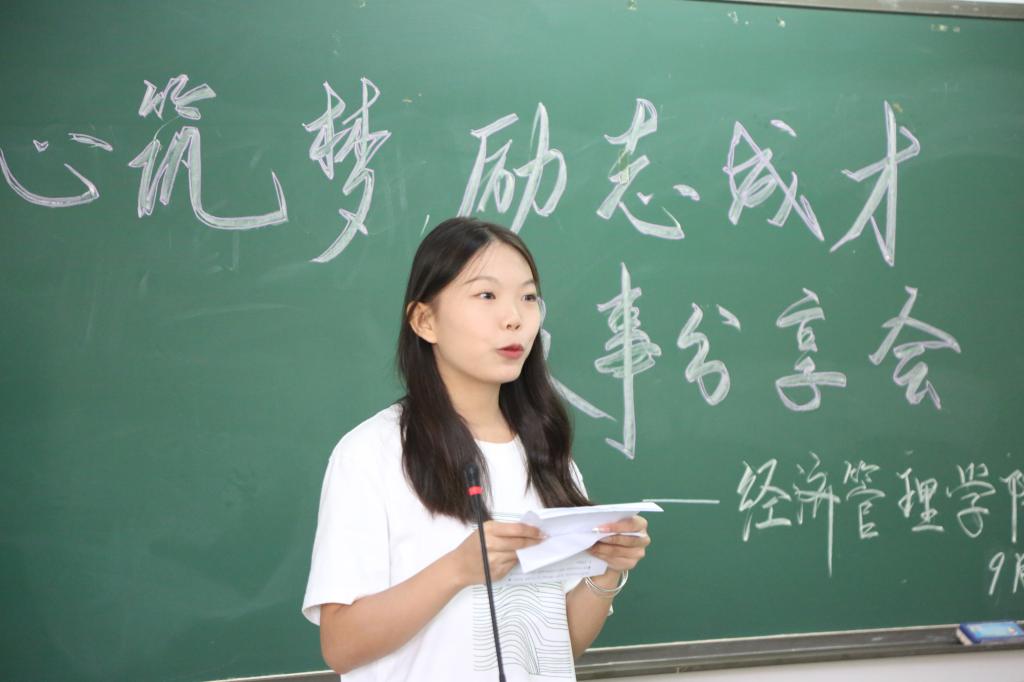 心筑梦 励志成才
事分享会
经济管理学院
9月